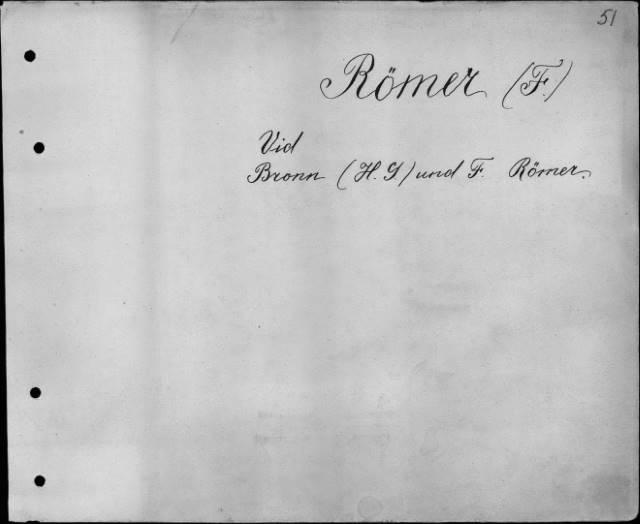 51
Römer (F.)
Vid
Bronn (H. G) und F. Römer.